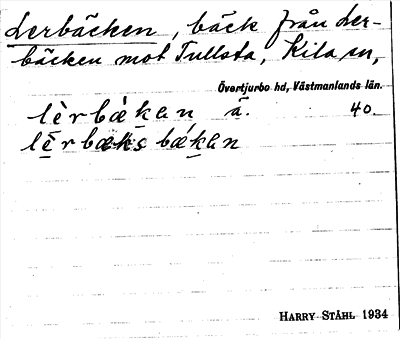 Lerbäcken, bäck från Ler-
bäcken mot Tullsta, Kila sn,
Övertjurbo hd, Västmanlands län.
lèrbæ̀kan ä. 40.
lèrbæksbǽkan
HARRY STÅHL 1934